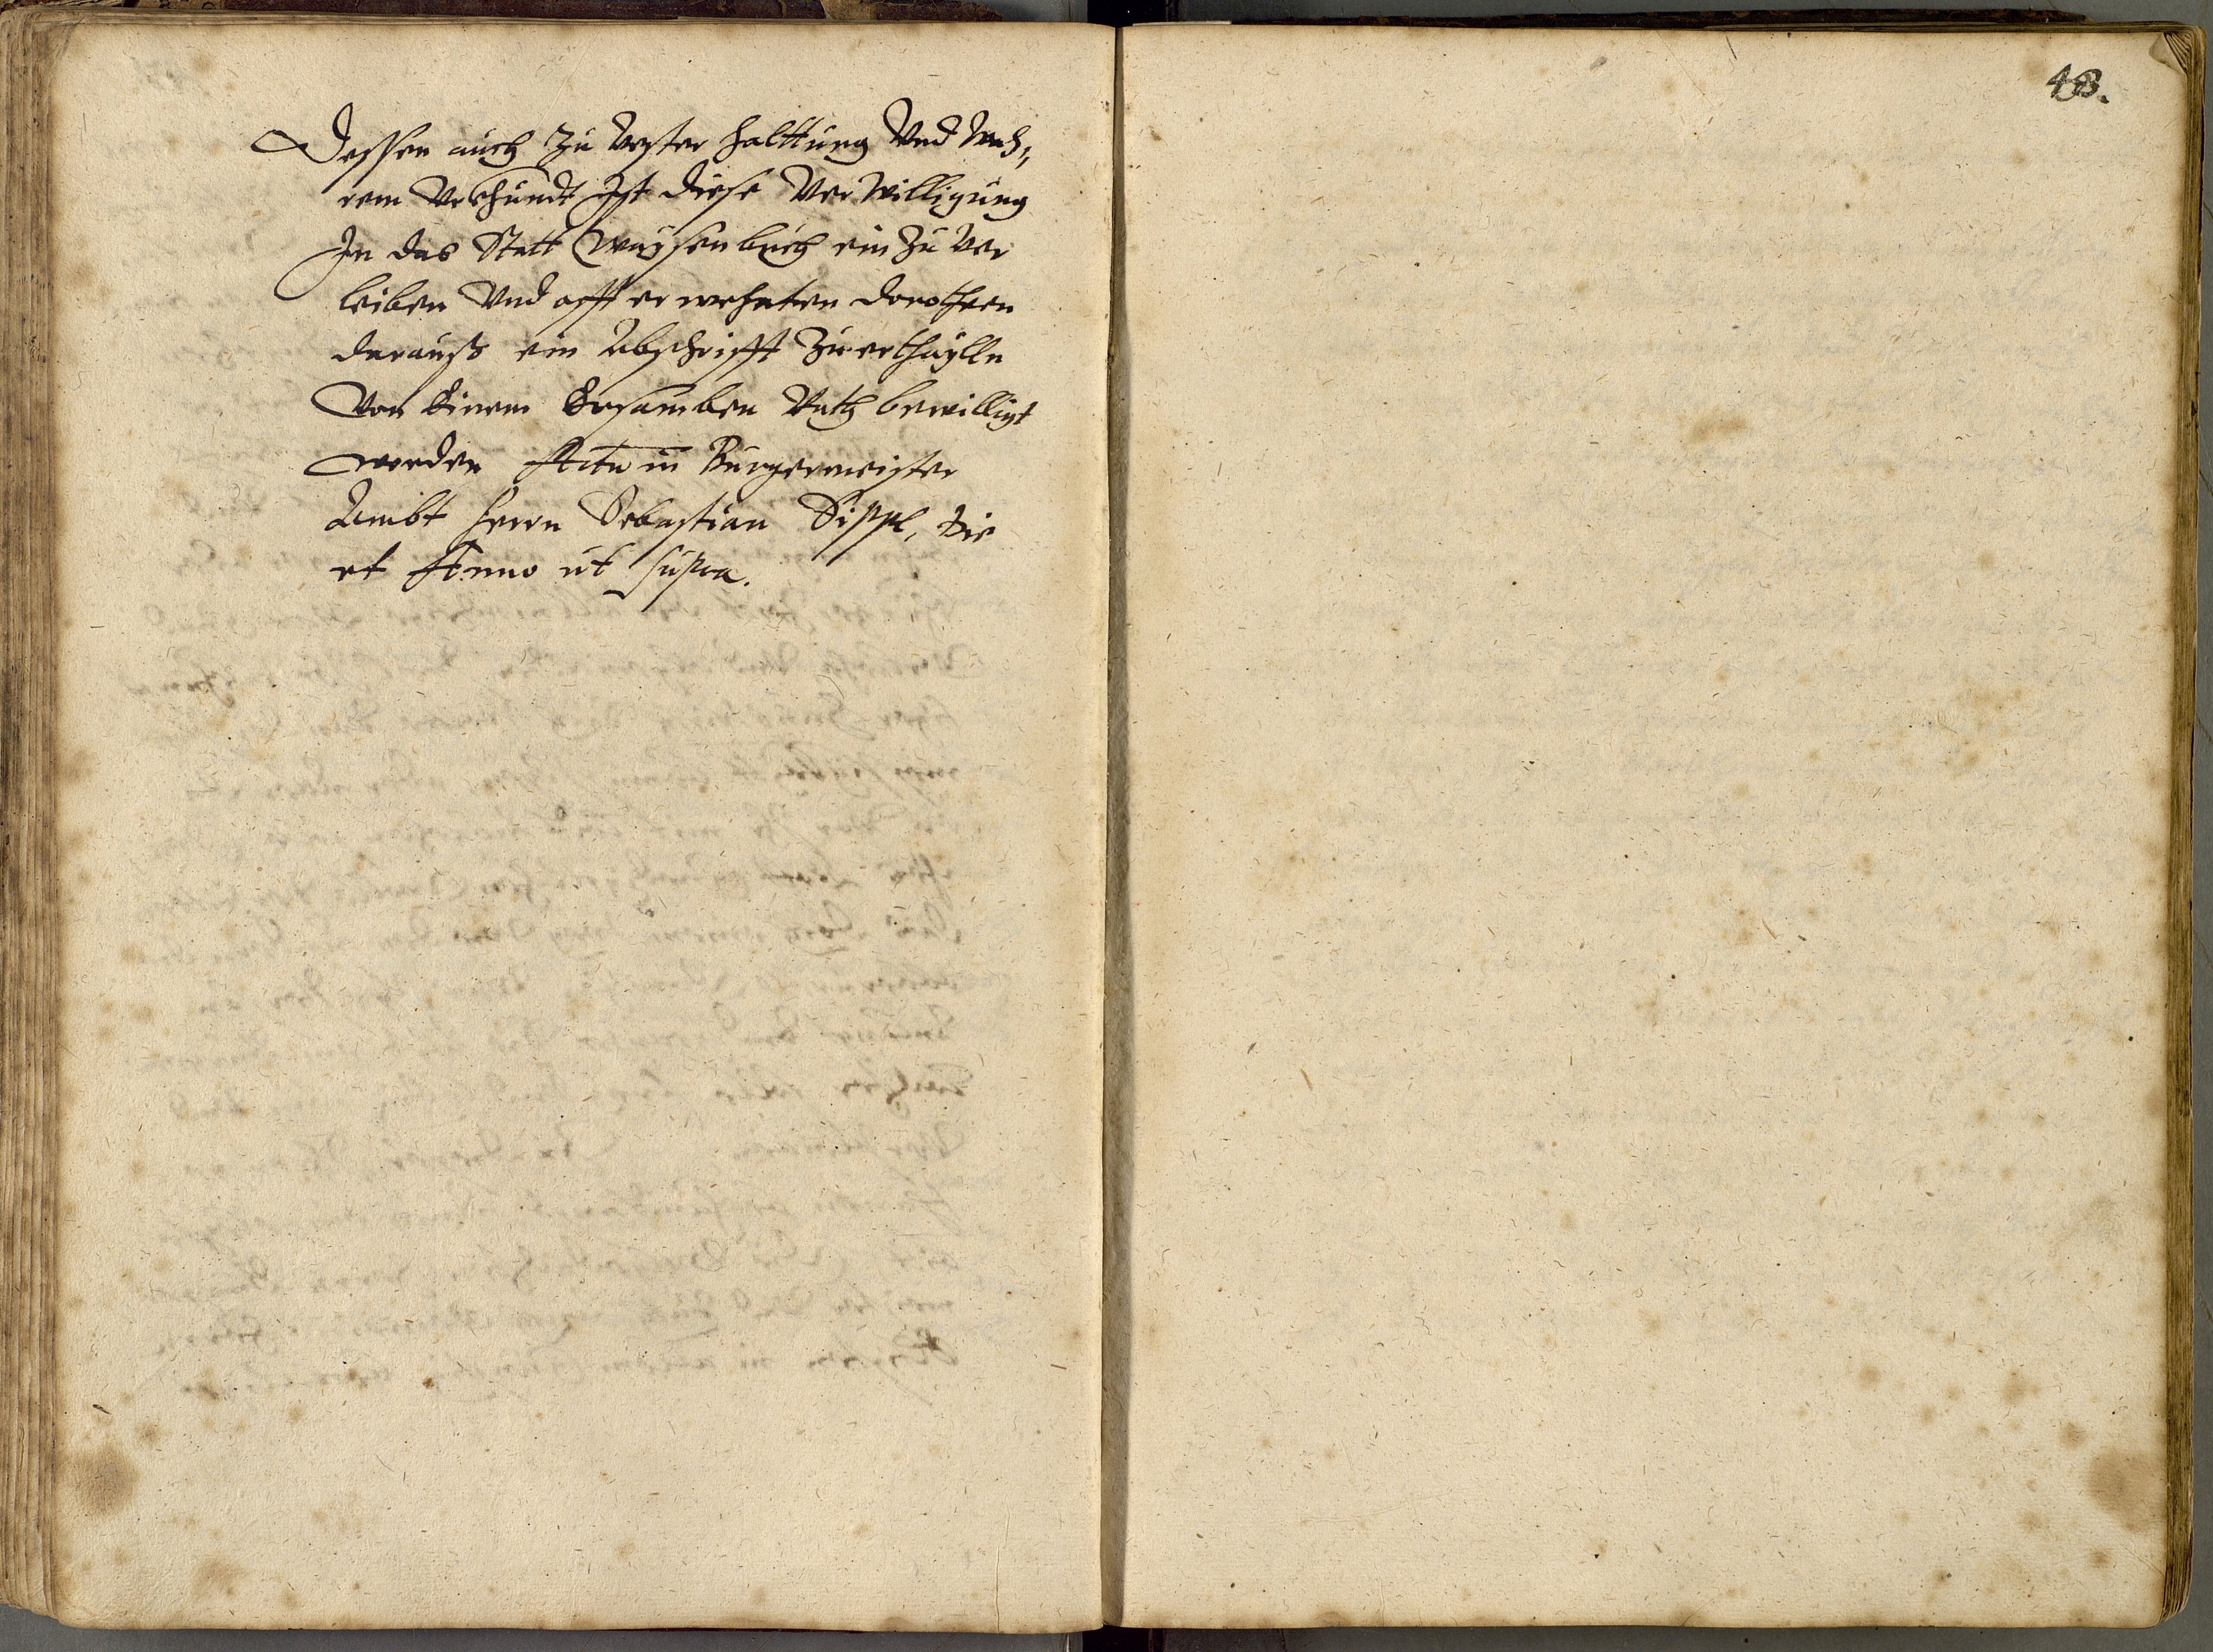 Dessen auch Zu Vester Halttung Vnd Wah„
rem Vrkhundt Ist diese VerWilligung
In das Statt Waÿsenbuch ein Zu Ver
leiben Vnd offt erwehnten Dorotheen
darauß ein Abschrifft Zuerthaÿlln
Von Einem Ersamben Rath bewilligt
worden Actu in Burgermeister
Ambt Herrn Sebastian Sippl, Die
et Anno ut supra.